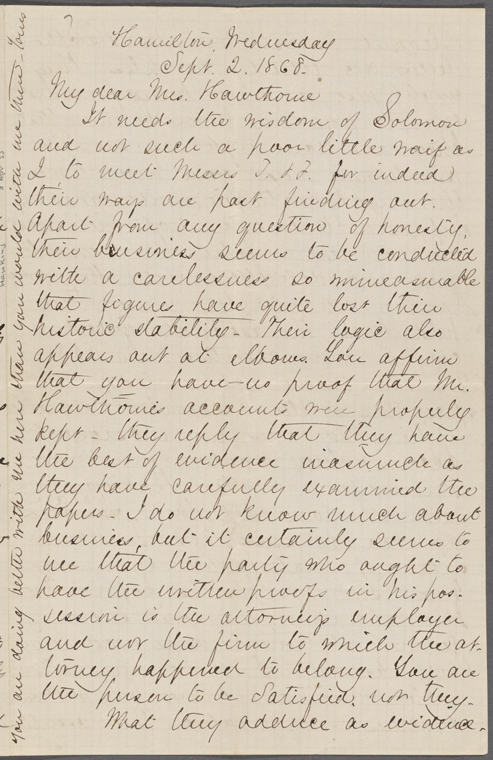 ?
Hamilton, Wednesday
Sept. 2. 1868.
My dear Mrs. Hawthorne
It needs the wisdom of Solomon
and not such a poor little waif as
I, to meet Messrs T. & F. for indeed
their ways are past finding out.
Apart from any question of honesty,
their buusiness seems to be conducted
with a carelessness so immeasurable
that figures have quite lost their
historic stability. Their logic also
appears out at elbows. You affirm
that you have no proof that Mr.
Hawthorne's accounts were properly
kept - they reply that they have
the best of evidence inasmuch as
they have carefully examined the
papers. I do not know much about
business, but it certainly seems to
me that the party who ought to
have the written proofs in his pos-
session is the attorney's employer
and not the firm to which the at-
torney happened to belong. You are
the person to be satisfied, not they.
What they adduce as evidence,
you are doing better with me here than you would with me there. Yours